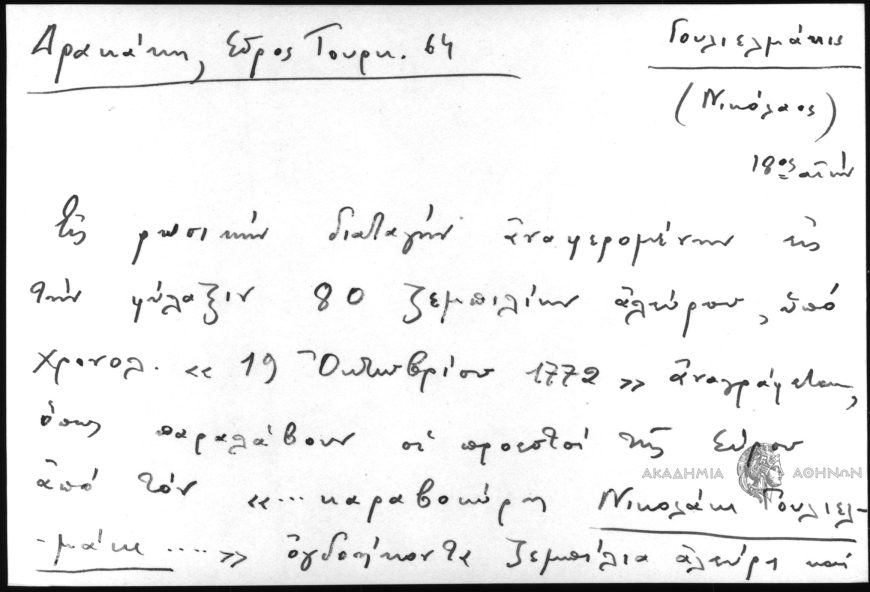 Δρακάκη, Σῦρος Τουρκ. 64
Γουλιελμάκις
(Νικόλαος)
18ος αἰών
Εἰς ρωσικήν διαταγήν ἀναφερομένην εἰς
τήν φύλαξιν 80 ζεμπιλίων ἀλεύρου, ὑπό
χρονολ. « 19 Ὀκτωβρίου 1772 » ἀναγράφεται,
ὅπως παραλάβουν οἱ προεστοί τῆς Σύρου
ἀπό τόν «... καραβοκύρη Νικολάκη Γουλιελ-
-μάκη .... » ὀγδοήκοντα ζεμπίλια ἀλεύρι καί
ΑΚΑΔΗΜΙΑ ΑΘΗΝΩΝ